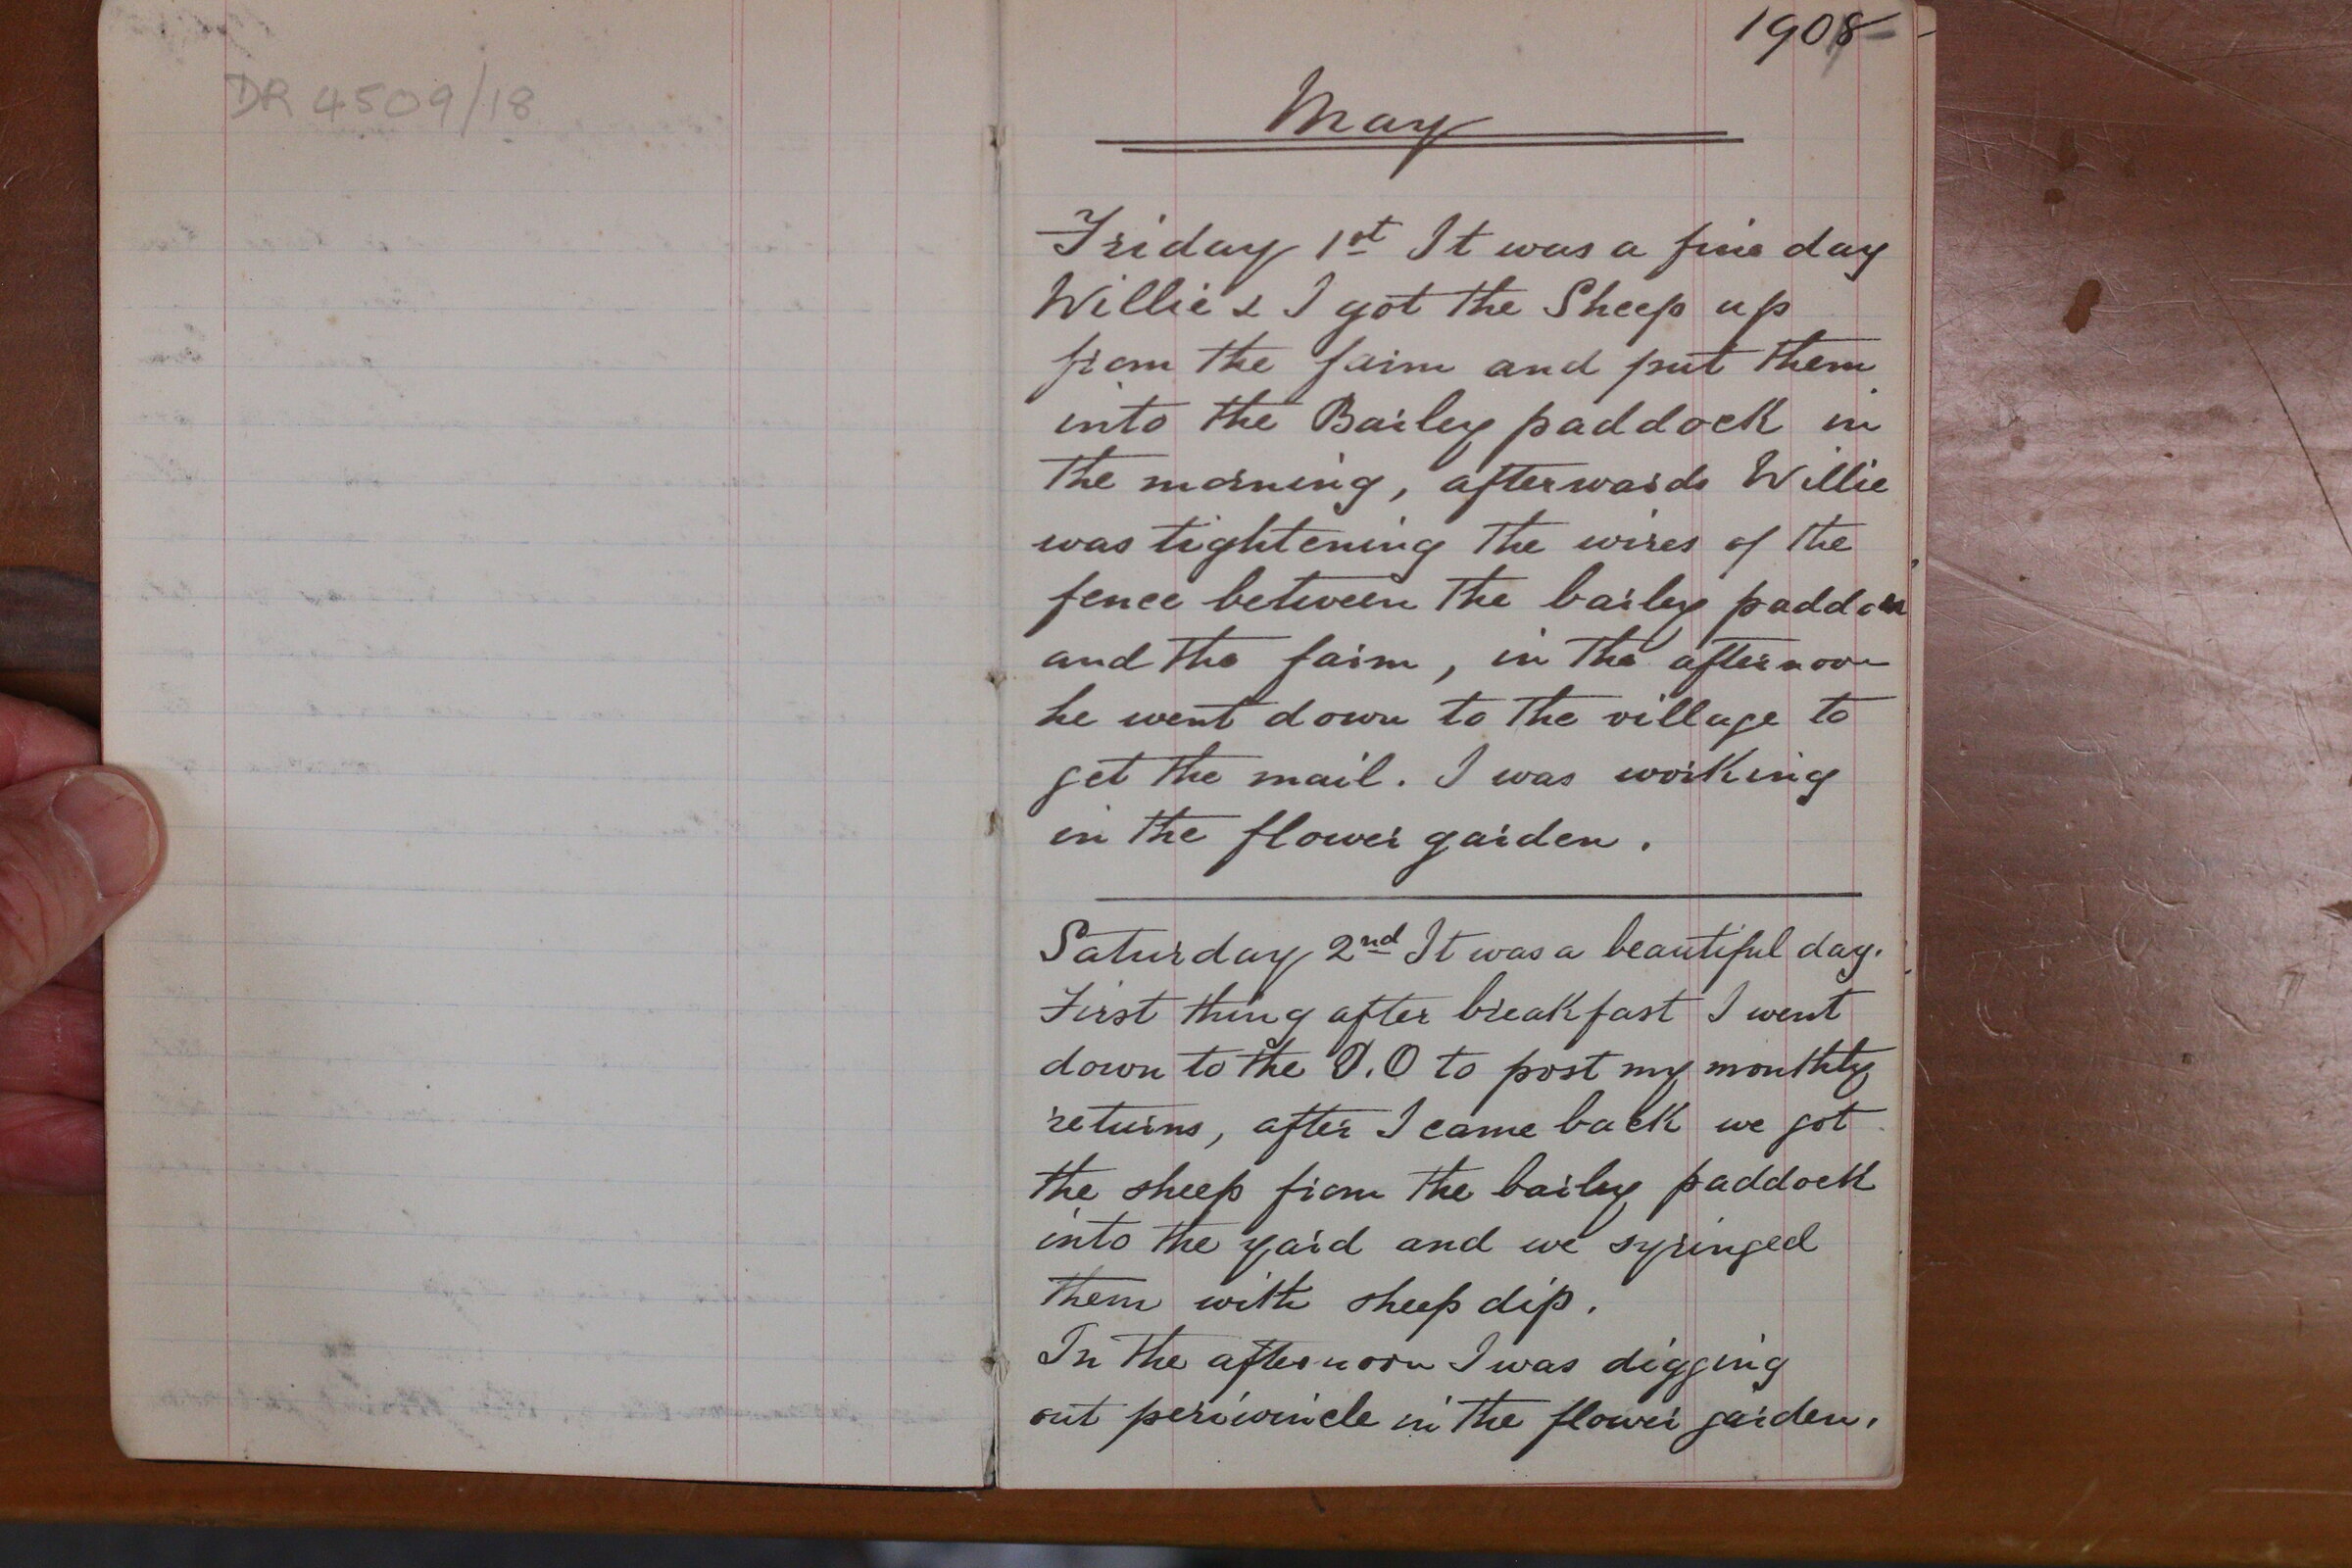 DR 4509/18
1908
May
Friday 1st It was a fine day
Willie & I got the Sheep up
from the farm and put them
into the Bailey paddock in
the morning, afterwards Willie
was tightening the wires of the
fence between the bailey paddock
and the farm, in the afternoon
he went down to the village to
get the mail. I was working
in the flower garden.
Saturday 2nd It was a beautiful day.
First thing after breakfast I went
down to the P.O to post my monthly
returns, after I came back we got
the sheep from the bailey paddock
into the yard and we syringed
them with sheep dip.
In the afternoon I was digging
out periwincle in the flower garden.